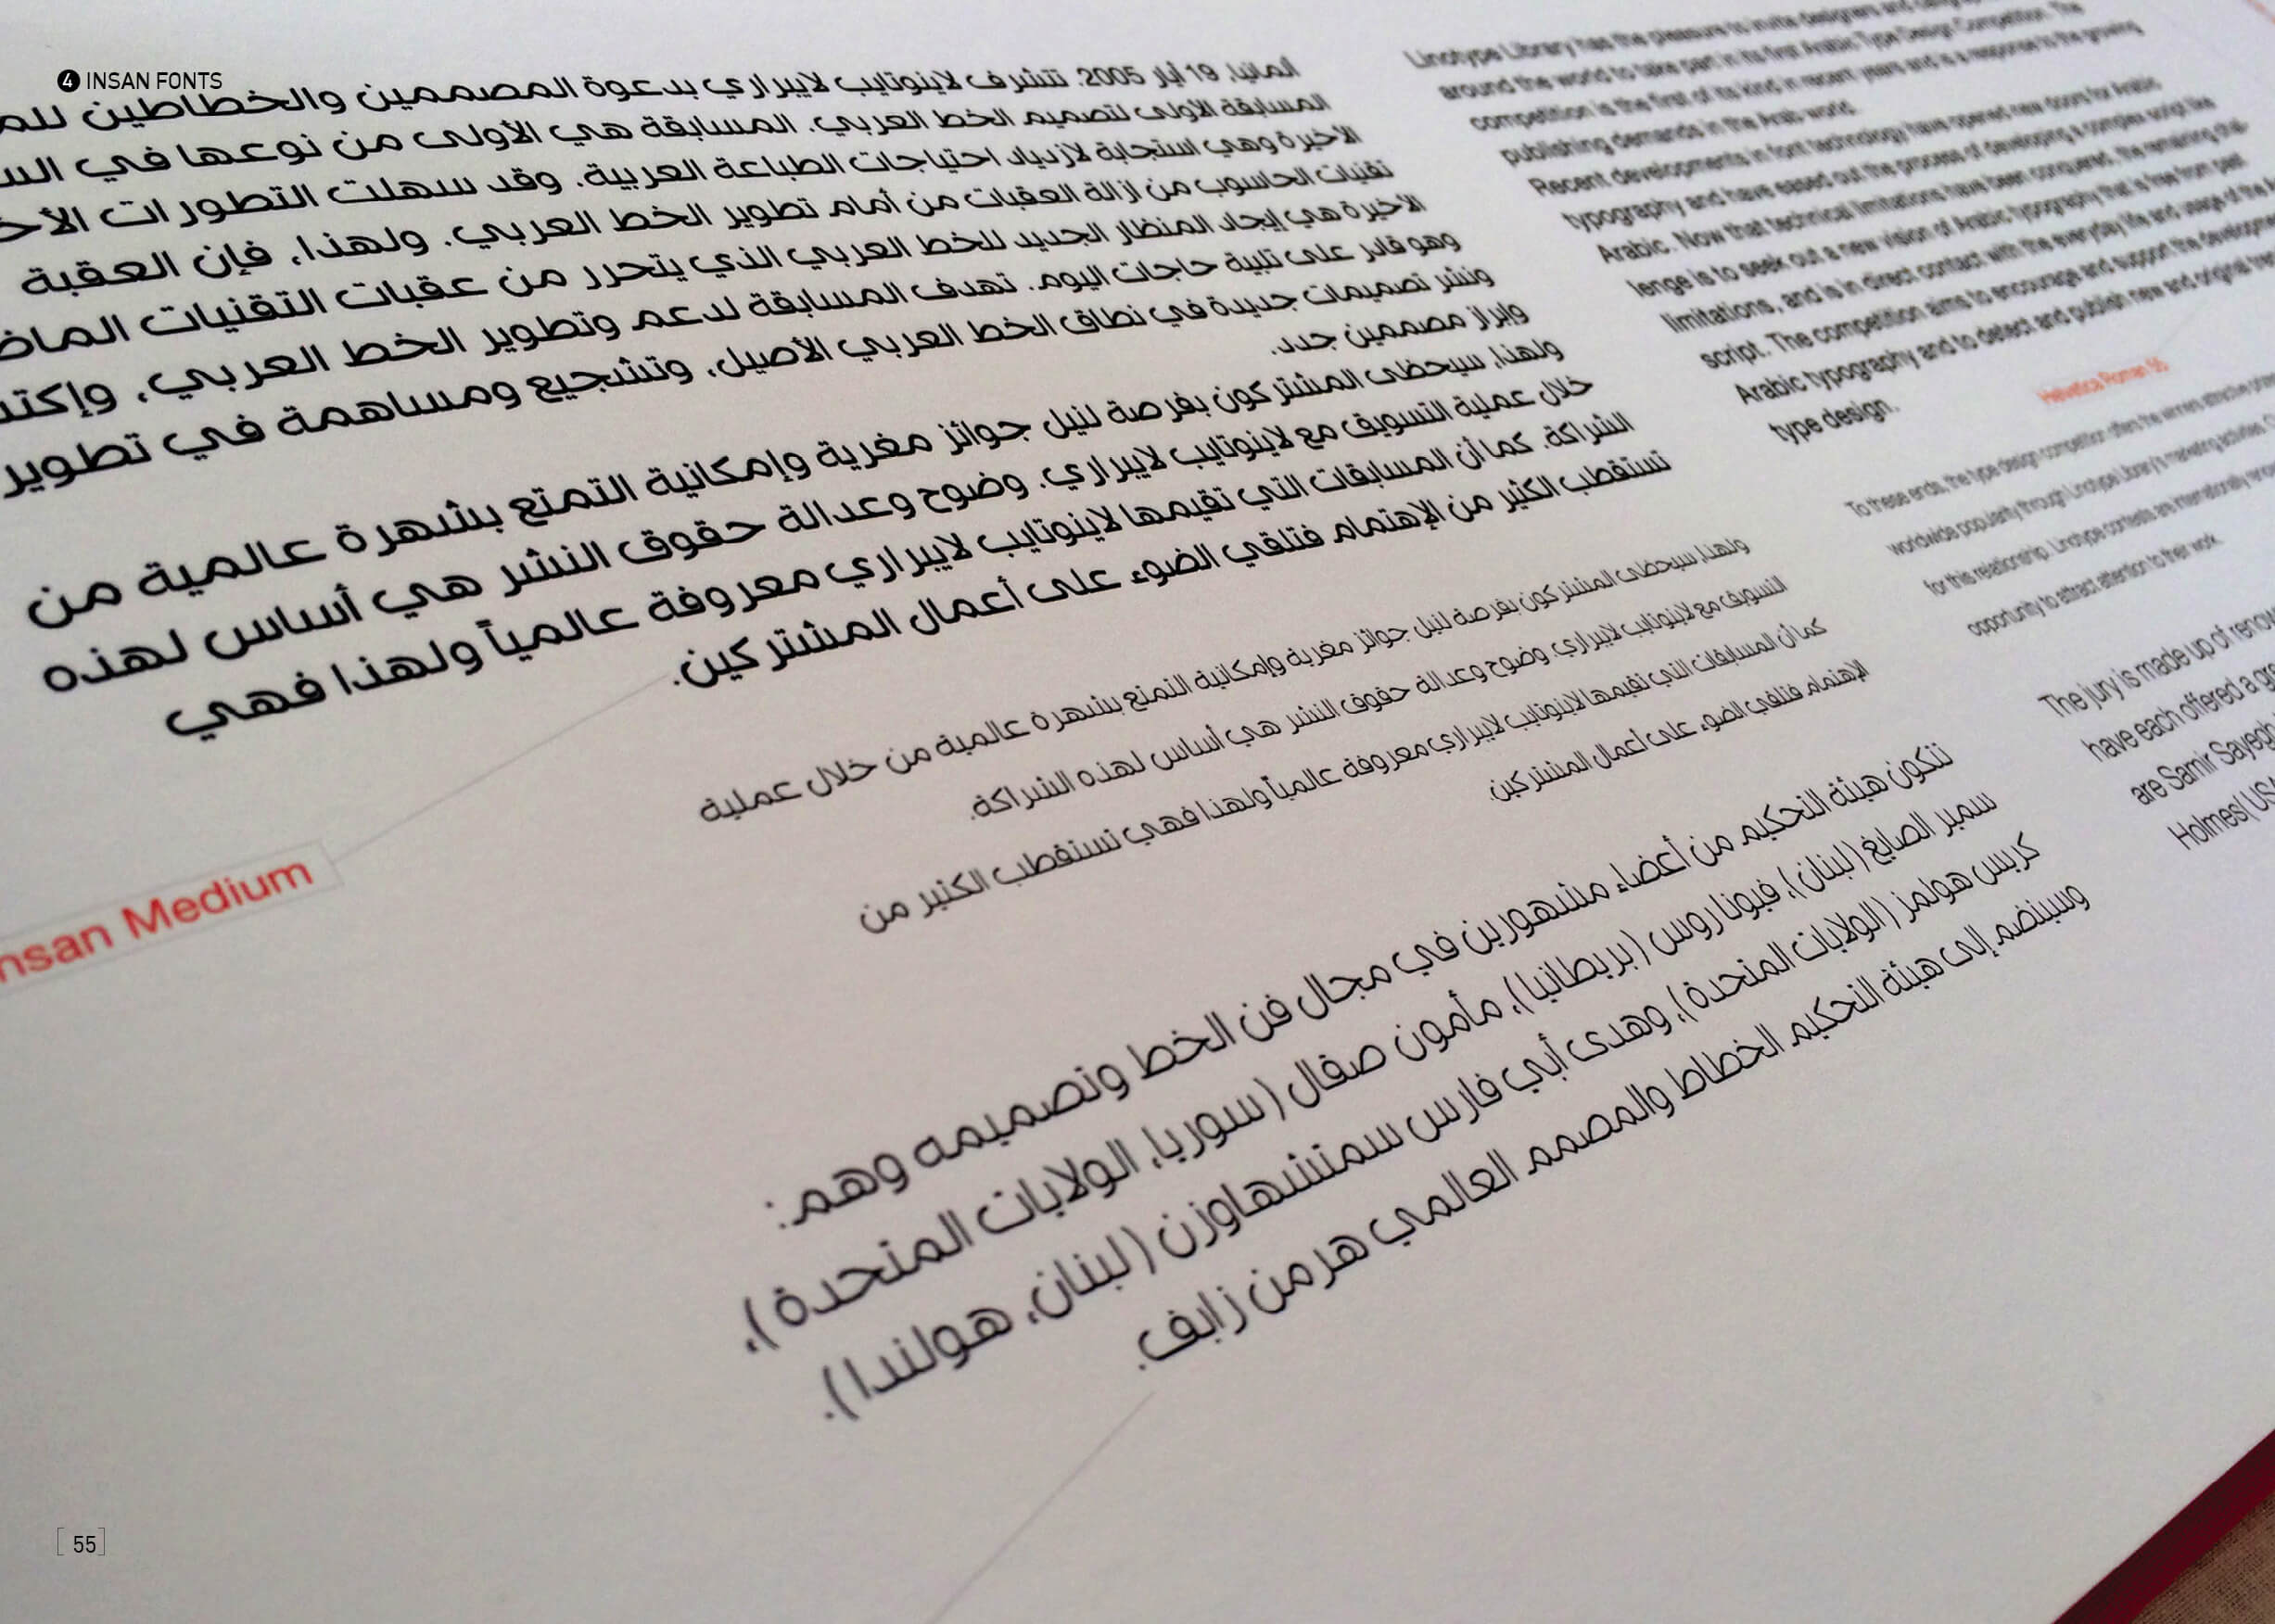 4 INSAN FONTS
ألمانيا، 19 أيار 2005. تتشرف لاينوتايب لايبراري بدعوة المصممين والخطاطين
المسابقة الأولى لتصميم الخط العربي. المسابقة هي الأولى من نوعها في
الأخيرة وهي استجابة لازدياد احتياجات الطباعة العربية. وقد سهلت التطورات
تقنيات الحاسوب من إزالة العقبات من أمام تطوير الخط العربي. ولهذا، فإن العقبة
الأخيرة هي إيجاد المنظار الجديد للخط العربي الذي يتحرر من عقبات التقنيات
وهو قادر على تلبية حاجات اليوم. تهدف المسابقة لدعم وتطوير الخط العربي،
ونشر تصميمات جديدة في نطاق الخط العربي الأصيل، وتشجيع ومساهمة في تطوير
وإبراز مصممين جدد.
ولهذا, سيحظى المشتركون بفرصة لنيل جوائز مغرية وإمكانية التمتع بشهرة عالمية من
خلال عملية التسويق مع لاينوتايب لايبراري. وضوح وعدالة حقوق النشر هي أساس لهذه
الشراكة. كما أن المسابقات التي تقيمها لاينوتايب لايبراري معروفة عالمياً ولهذا فهي
تستقطب الكثير من الإهتمام فتلقي الضوء على أعمال المشتركين.
Insan Medium
ولهذا، سيحظى المشتركون بفرصة لنيل جوائز مغرية وإمكانية التمتع بشهرة عالمية من خلال عملية
التسويق مع لاينوتايب لايبراري. وضوح وعدالة حقوق النشر هي أساس لهذه الشراكة.
كما أن المسابقات التي تقيمها لاينوتايب لايبراري معروفة عالمياً ولهذا فهي تستقطب الكثير من
الإهتمام فتلقي الضوء على أعمال المشتركين.
تتكون هيئة التحكيم من أعضاء مشهورين في مجال فن الخط وتصميمه وهم:
سمير الصايغ (لبنان)، فيونا روس (بريطانيا)، مأمون صقال (سوريا، الولايات المتحدة)،
كريس هولمز (الولايات المتحدة)، وهدى أبي فارس سمتشهاوزن (لبنان، هولندا).
وسينضم إلى هيئة التحكيم الخطاط والمصمم العالمي هرمن زابف.
Linotype Library has the pleasure to invite designers and
around the world to take part in its first Arabic Type Design Competition. The
competition is the first of its kind in recent years and is a response to the growing
publishing demands in the Arab world.
Recent developments in font technology have opened new doors for Arabic
typography and have eased out the process of developing a complex script like
Arabic. Now that technical limitations have been conquered, the remaining chal-
lenge is to seek out a new vision of Arabic typography that is free from past
limitations, and is in direct contact with the everyday life and usage of the
script. The competition aims to encourage and support the development
Arabic typography and to detect and publish new and original
type design.
Helvetica Roman 55
To these ends, the type design competition offers the winners attractive
worldwide popularity through Linotype Library's marketing activities.
for this relationship. Linotype contests are internationally
opportunity to attract attention to their work.
The jury is made up of
have each offered a
are Samir Sayegh
Holmes( USA
[ 55 ]